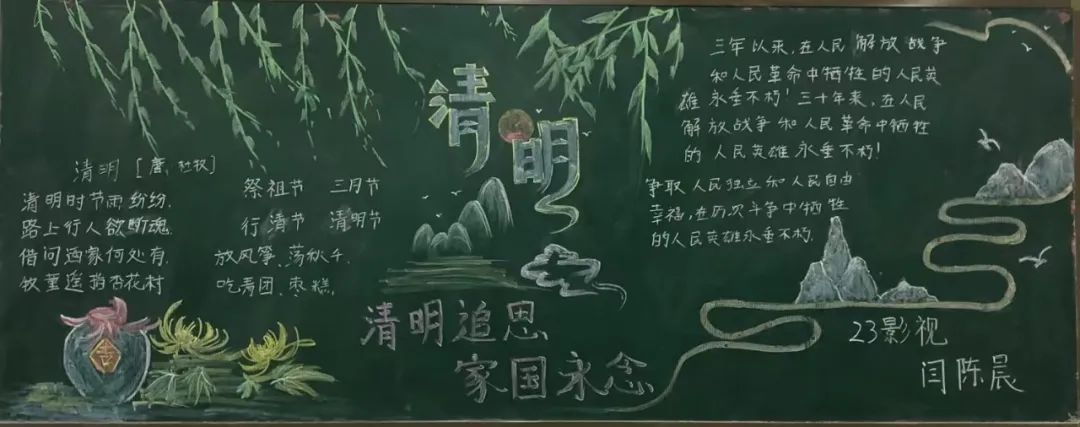 清明
清明 [唐, 杜牧]
清明时节雨纷纷,
路上行人欲断魂
借问酒家何处有,
牧童遥指杏花村
祭祖节 三月节
行清节 清明节
放风筝, 荡秋千,
吃青团, 枣糕,
清明追思
家国永念
三年以来, 在人民 解放 战争
和人民革命中牺牲 的人民英
雄 永垂不朽! 三十年来, 在人民
解放战争和人民革命中牺牲
的 人民英雄 永垂不朽!
争取 人民独立和人民自由
幸福, 在历次斗争中牺牲
的人民英雄永垂不朽.
23影视
闫陈晨